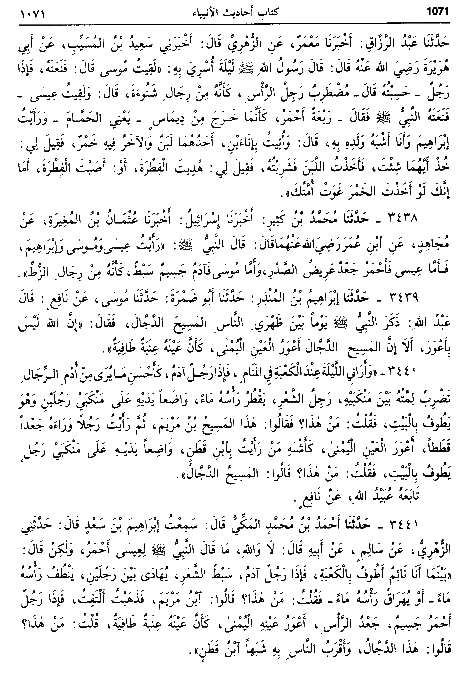 1071 كتاب أحاديث الأنبياء ١٠٧١
حَدَّثَنَا عَبْدُ الرَّزَّاقِ: أَخْبَرَنَا مَعْمَرٌ، عَنِ الزُّهْرِيِّ قَالَ: أَخْبَرَنِي سَعِيدُ بْنُ المُسَيَّبِ، عَنْ أَبِي
هُرَيْرَةَ رَضِيَ اللهُ عَنْهُ قَالَ: قَالَ رَسُولُ اللهِ ﷺ لَيْلَةَ أُسْرِيَ بِهِ: «لَقِيتُ مُوسَى قَالَ: فَنَعَتَهُ، فَإِذَا
رَجُلٌ - حَسِبْتُهُ قَالَ - مُضْطَرِبٌ رَجِلُ الرَّأْسِ، كَأَنَّهُ مِنْ رِجَالِ شَنُوءَةَ، قَالَ: وَلَقِيتُ عِيسَى -
فَنَعَتَهُ النَّبِيُّ ﷺ فَقَالَ - رَبْعَةٌ أَحْمَرُ، كَأَنَّمَا خَرَجَ مِنْ دِيمَاسٍ - يَعْنِي الحَمَّامَ - وَرَأَيْتُ
إِبْرَاهِيمَ وَأَنَا أَشْبَهُ وَلَدِهِ بِهِ، قَالَ: وَأُتِيتُ بِإِنَاءَيْنِ، أَحَدُهُمَا لَبَنٌ وَالآخَرُ فِيهِ خَمْرٌ، فَقِيلَ لِي:
خُذْ أَيَّهُمَا شِئْتَ، فَأَخَذْتُ اللَّبَنَ فَشَرِبْتُهُ، فَقِيلَ لِي: هُدِيتَ الفِطْرَةَ، أَوْ: أَصَبْتَ الفِطْرَةَ، أَمَا
إِنَّكَ لَوْ أَخَذْتَ الخَمْرَ غَوَتْ أُمَّتُكَ».
٣٤٣٨ - حَدَّثَنَا مُحَمَّدُ بْنُ كَثِيرٍ: أَخْبَرَنَا إِسْرَائِيلُ: أَخْبَرَنَا عُثْمَانُ بْنُ المُغِيرَةِ، عَنْ
مُجَاهِدٍ، عَنِ ابْنِ عُمَرَ رَضِيَ اللهُ عَنْهُمَا قَالَ: قَالَ النَّبِيُّ ﷺ: «رَأَيْتُ عِيسَى وَمُوسَى وَإِبْرَاهِيمَ،
فَأَمَّا عِيسَى فَأَحْمَرُ جَعْدٌ عَرِيضُ الصَّدْرِ، وَأَمَّا مُوسَى فَآدَمُ جَسِيمٌ سَبْطٌ، كَأَنَّهُ مِنْ رِجَالِ الزُّطِّ».
٣٤٣٩ - حَدَّثَنَا إِبْرَاهِيمُ بْنُ المُنْذِرِ: حَدَّثَنَا أَبُو ضَمْرَةَ: حَدَّثَنَا مُوسَى، عَنْ نَافِعٍ: قَالَ
عَبْدُ اللهِ: ذَكَرَ النَّبِيُّ ﷺ يَوْماً بَيْنَ ظَهْرَيِ النَّاسِ المَسِيحَ الدَّجَّالَ، فَقَالَ: «إِنَّ اللهَ لَيْسَ
بِأَعْوَرَ، أَلَا إِنَّ المَسِيحَ الدَّجَّالَ أَعْوَرُ العَيْنِ اليُمْنَى، كَأَنَّ عَيْنَهُ عِنَبَةٌ طَافِيَةٌ».
٣٤٤١ - «وَأَرَانِي اللَّيْلَةَ عِنْدَ الكَعْبَةِ فِي المَنَامِ، فَإِذَا رَجُلٌ آدَمُ، كَأَحْسَنِ مَا يُرَى مِنْ أُدْمِ الرِّجَالِ
تَضْرِبُ لِمَّتُهُ بَيْنَ مَنْكِبَيْهِ، رَجِلُ الشَّعْرِ، يَقْطُرُ رَأْسُهُ مَاءً، وَاضِعاً يَدَيْهِ عَلَى مَنْكِبَيْ رَجُلَيْنِ وَهُوَ
يَطُوفُ بِالْبَيْتِ، فَقُلْتُ: مَنْ هٰذَا؟ فَقَالُوا: هٰذَا المَسِيحُ بْنُ مَرْيَمَ، ثُمَّ رَأَيْتُ رَجُلًا وَرَاءَهُ جَعْداً
قَطَطاً، أَعْوَرَ العَيْنِ اليُمْنَى، كَأَشْبَهِ مَنْ رَأَيْتُ بِابْنِ قَطَنٍ، وَاضِعاً يَدَيْهِ عَلَى مَنْكِبَيْ رَجُلٍ
يَطُوفُ بِالْبَيْتِ، فَقُلْتُ: مَنْ هٰذَا؟ قَالُوا: المَسِيحُ الدَّجَّالُ».
تَابَعَهُ عُبَيْدُ اللهِ، عَنْ نَافِعٍ.
٣٤٤١ - حَدَّثَنَا أَحْمَدُ بْنُ مُحَمَّدٍ المَكِّيُّ قَالَ: سَمِعْتُ إِبْرَاهِيمَ بْنَ سَعْدٍ قَالَ: حَدَّثَنِي
الزُّهْرِيُّ، عَنْ سَالِمٍ، عَنْ أَبِيهِ قَالَ: لَا وَاللهِ، مَا قَالَ النَّبِيُّ ﷺ لِعِيسَى أَحْمَرُ، وَلٰكِنْ قَالَ:
«بَيْنَمَا أَنَا نَائِمٌ أَطُوفُ بِالْكَعْبَةِ، فَإِذَا رَجُلٌ آدَمُ، سَبْطُ الشَّعَرِ، يُهَادَى بَيْنَ رَجُلَيْنِ، يَنْطُفُ رَأْسُهُ
مَاءً - أَوْ يُهَرَاقُ رَأْسُهُ مَاءً - فَقُلْتُ: مَنْ هٰذَا؟ قَالُوا: ابْنُ مَرْيَمَ، فَذَهَبْتُ أَلْتَفِتُ، فَإِذَا رَجُلٌ
أَحْمَرُ جَسِيمٌ، جَعْدُ الرَّأْسِ، أَعْوَرُ عَيْنِهِ الْيُمْنَى، كَأَنَّ عَيْنَهُ عِنَبَةٌ طَافِيَةٌ، قُلْتُ: مَنْ هٰذَا؟
قَالُوا: هٰذَا الدَّجَّالُ، وَأَقْرَبُ النَّاسِ بِهِ شَبَهاً ابْنُ قَطَنٍ».